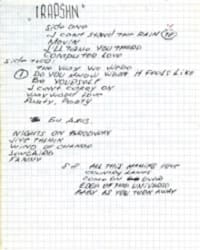 "TRAPSHN"
SIDE ONE
I CAN'T STAND THE RAIN
MOVIN
I'LL TAKE YOU THERE
COMPUTER LOVE
SIDE TWO:
THE WAY WE WERE
① DO YOU KNOW WHAT IT FEELS LIKE
BE YOURSELF
I CAN'T CARRY ON
WAY WORST LOVE
PARTY, PARTY
NIGHTS ON BROADWAY
JIVE TALKIN
WIND OF CHANGE
SONGBIRD
FANNY
ALL THIS MAKING LOVE
COUNTRY LANES
COME ON OVER
EDGE OF THE UNIVERSE
BABY AS YOU TURN AWAY